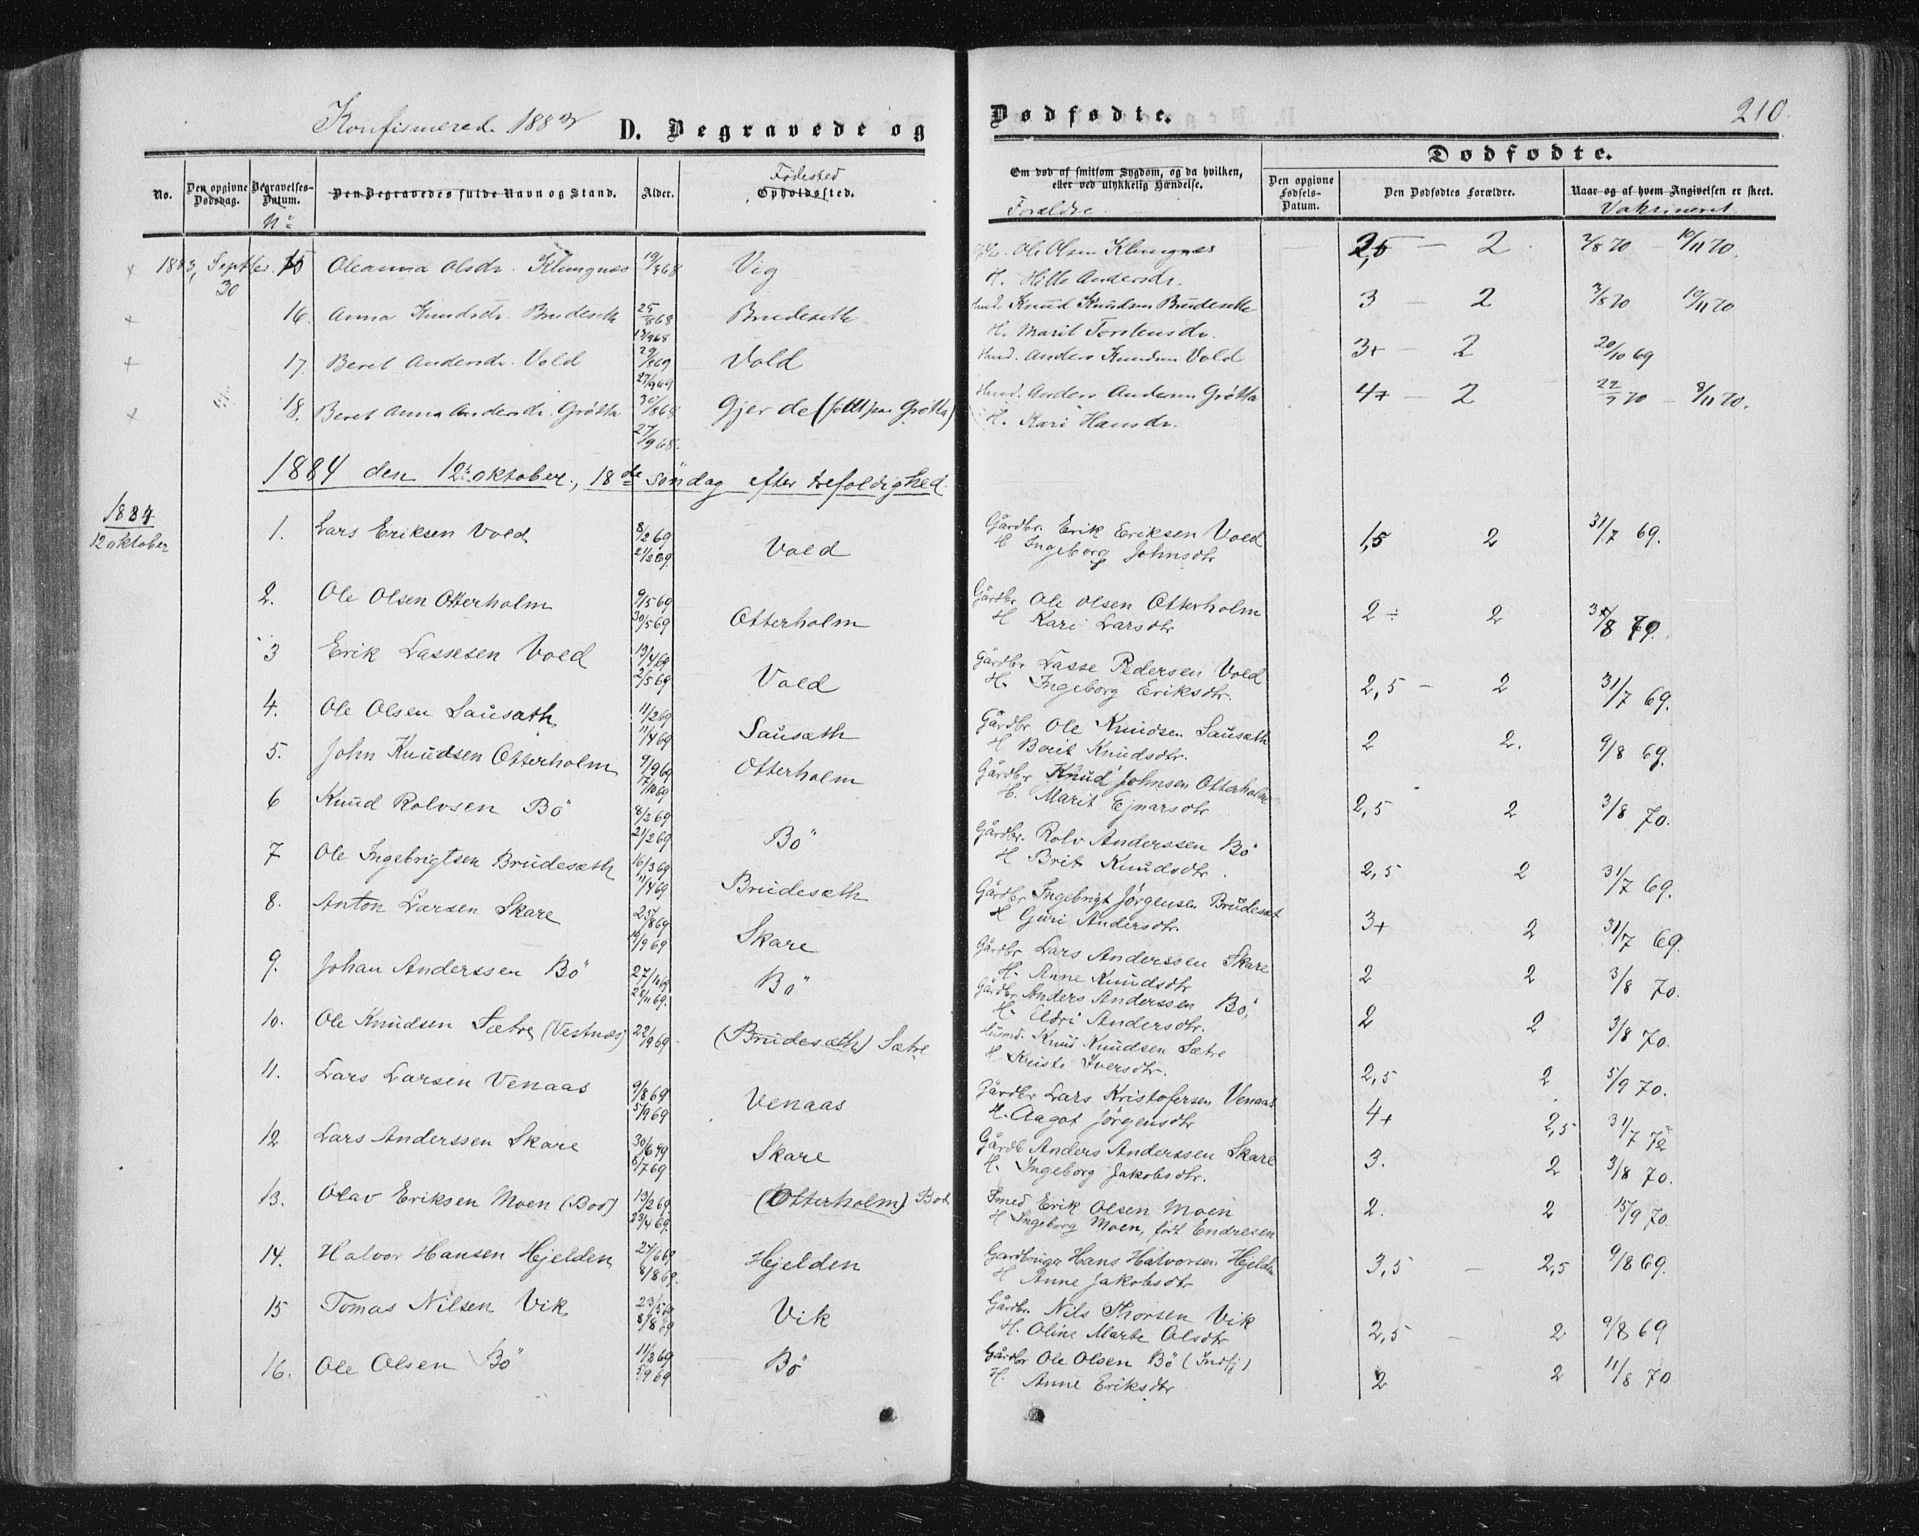 Konfirmered. 1883
D. Begravede og
Dødfødte.
210.
No.
Den opgivne Dødsdag.
Begravelses-Datum.
No
Den Begravedes fulde Navn og Stand.
Alder.
Fødested
Opholdssted.
Om død af smitsom Sygdom, og da hvilken, eller ved ulykkelig Hændelse.
Forældre
Dødfødte.
Den opgivne Fødsels-Datum.
Den Dødfødtes Forældre.
Naar og af hvem Angivelsen er skeet.
Vaksineret
1883, Septber 30 15 Oleanna Olsdr. Klungnes 19/8 68 Vig Ole Olsen Klungnes 2,5 – 2 2/8 70 – 10/11 70.
H. Andersdr.
16. Anna Knudsdr. Brudeseth 25/8 68 Brudeseth Husd. Knud Knudsen Brudeseth 3 – 2 3/8 70 10/11 70
13/9 68 H. Marit Torstensdr.
17 Beret Andersdr. Vold 29/8 69 Vold Husd. Anders Knudsen Vold 3+ – 2 20/10 69
27/9 69
18. Beret Anna Andersdr. Grøtta 30/8 68 Gjerde (født paa Grøtta) Husd. Anders Andersen Grøtta 4+ – 2 22/7 70 – 8/11 70.
27/9 68. H. Kari Hansdr.
1884 den 12te oktober, 18de söndag efter trefoldighed
1884
12 oktober
1. Lars Eriksen Vold 8/2 69 21/2 69 Vold Gårdbr. Erik Eriksen Vold 1,5 2 31/7 69.
H Ingeborg Johnsdtr
2. Ole Olsen Otterholm 9/5 69 30/5 69 Otterholm Gårdbr Ole Olsen Otterholm 2÷ 2
H Kari Larsdtr
3 Erik Lassesen Vold 13/4 69 2/5 69 Vold Gårdbr Lasse Pedersen Vold 2,5 – 2 31/7 69.
H. Ingeborg Eriksdtr.
4. Ole Olsen Sausæth 11/2 69 11/4 69 Sausæth Gårdbr Ole Knudsen Sausæth 2 2. 9/8 69.
H Berit Knudsdtr.
5. John Knudsen Otterholm 9/9 69 17/10 69 Otterholm Gårdbr Knud Johnsen Otterholm 2,5 2 3/8 70.
H. Marit Ejnarsdtr
6 Knud Rolvsen Bö 8/2 69 21/2 69 Bö Gårdbr. Rolv Anderssen Bö 2,5 2 31/7 69.
H Brit Knudsdtr.
7 Ole Ingebrigtsen Brudesæth 16/3 69 11/4 69 Brudesæth Gårdbr Ingebrigt Jørgensen Brudesæt 3+ 2 31/7 69.
H Guri Andersdtr.
8. Anton Larsen Skare 25/8 69 19/9 69 Skare Gårdbr Lars Anderssen Skare 2 2 3/8 70.
H. Anne Knudsdtr
9. Johan Anderssen Bö 27/10 69 28/11 69. Bö Gårdbr Anders Anderssen Bö, 2 2 3/8 70.
H. Eldri Andersdtr.
10. Ole Knudsen Sætre (Vestnæs) 22/9 69 (Brudesæth) Sætre Husmd. Knud Knudsen Sætre 2,5 2 5/9 70.
H Kristi Iversdtr.
11. Lars Larsen Venaas 9/8 69 5/9 69 Venaas Gårdbr Lars Kristofersen Venaas 4+ 2,5 31/7 72
H. Aagot Jørgensdtr
12 Lars Anderssen Skare 30/6 69 8/7 69 Skare Gårdb Anders Anderssen Skare 3. 2 3/8 70.
H. Ingeborg Jakobsdtr.
13. Olav Eriksen Moen (Bod) 13/2 69 23/4 69. (Otterholm) Bod Smed Erik Olsen Moen 2. 2 15/9 70.
H Ingeborg Moen, født Endresen
14. Halvor Hansen Hjelden 27/6 69 8/8 69. Hjelden Gardbruger Hans Halvorsen Hjelden 3,5 – 2,5 9/8 69.
H Anne Jakobsdtr
15 Tomas Nilsen Vik 23/5 69 8/8 69 Vik Gårdbr. Nils Thorsen Vik 2,5 – 2 9/8 69
H. Oline Marte Olsdtr
16. Ole Olsen Bö 11/8 69 5/9 69 Bö Gårdbr Ole Olsen Bö (Indfj) 2 2 11/8 70
H. Anne Eriksdtr